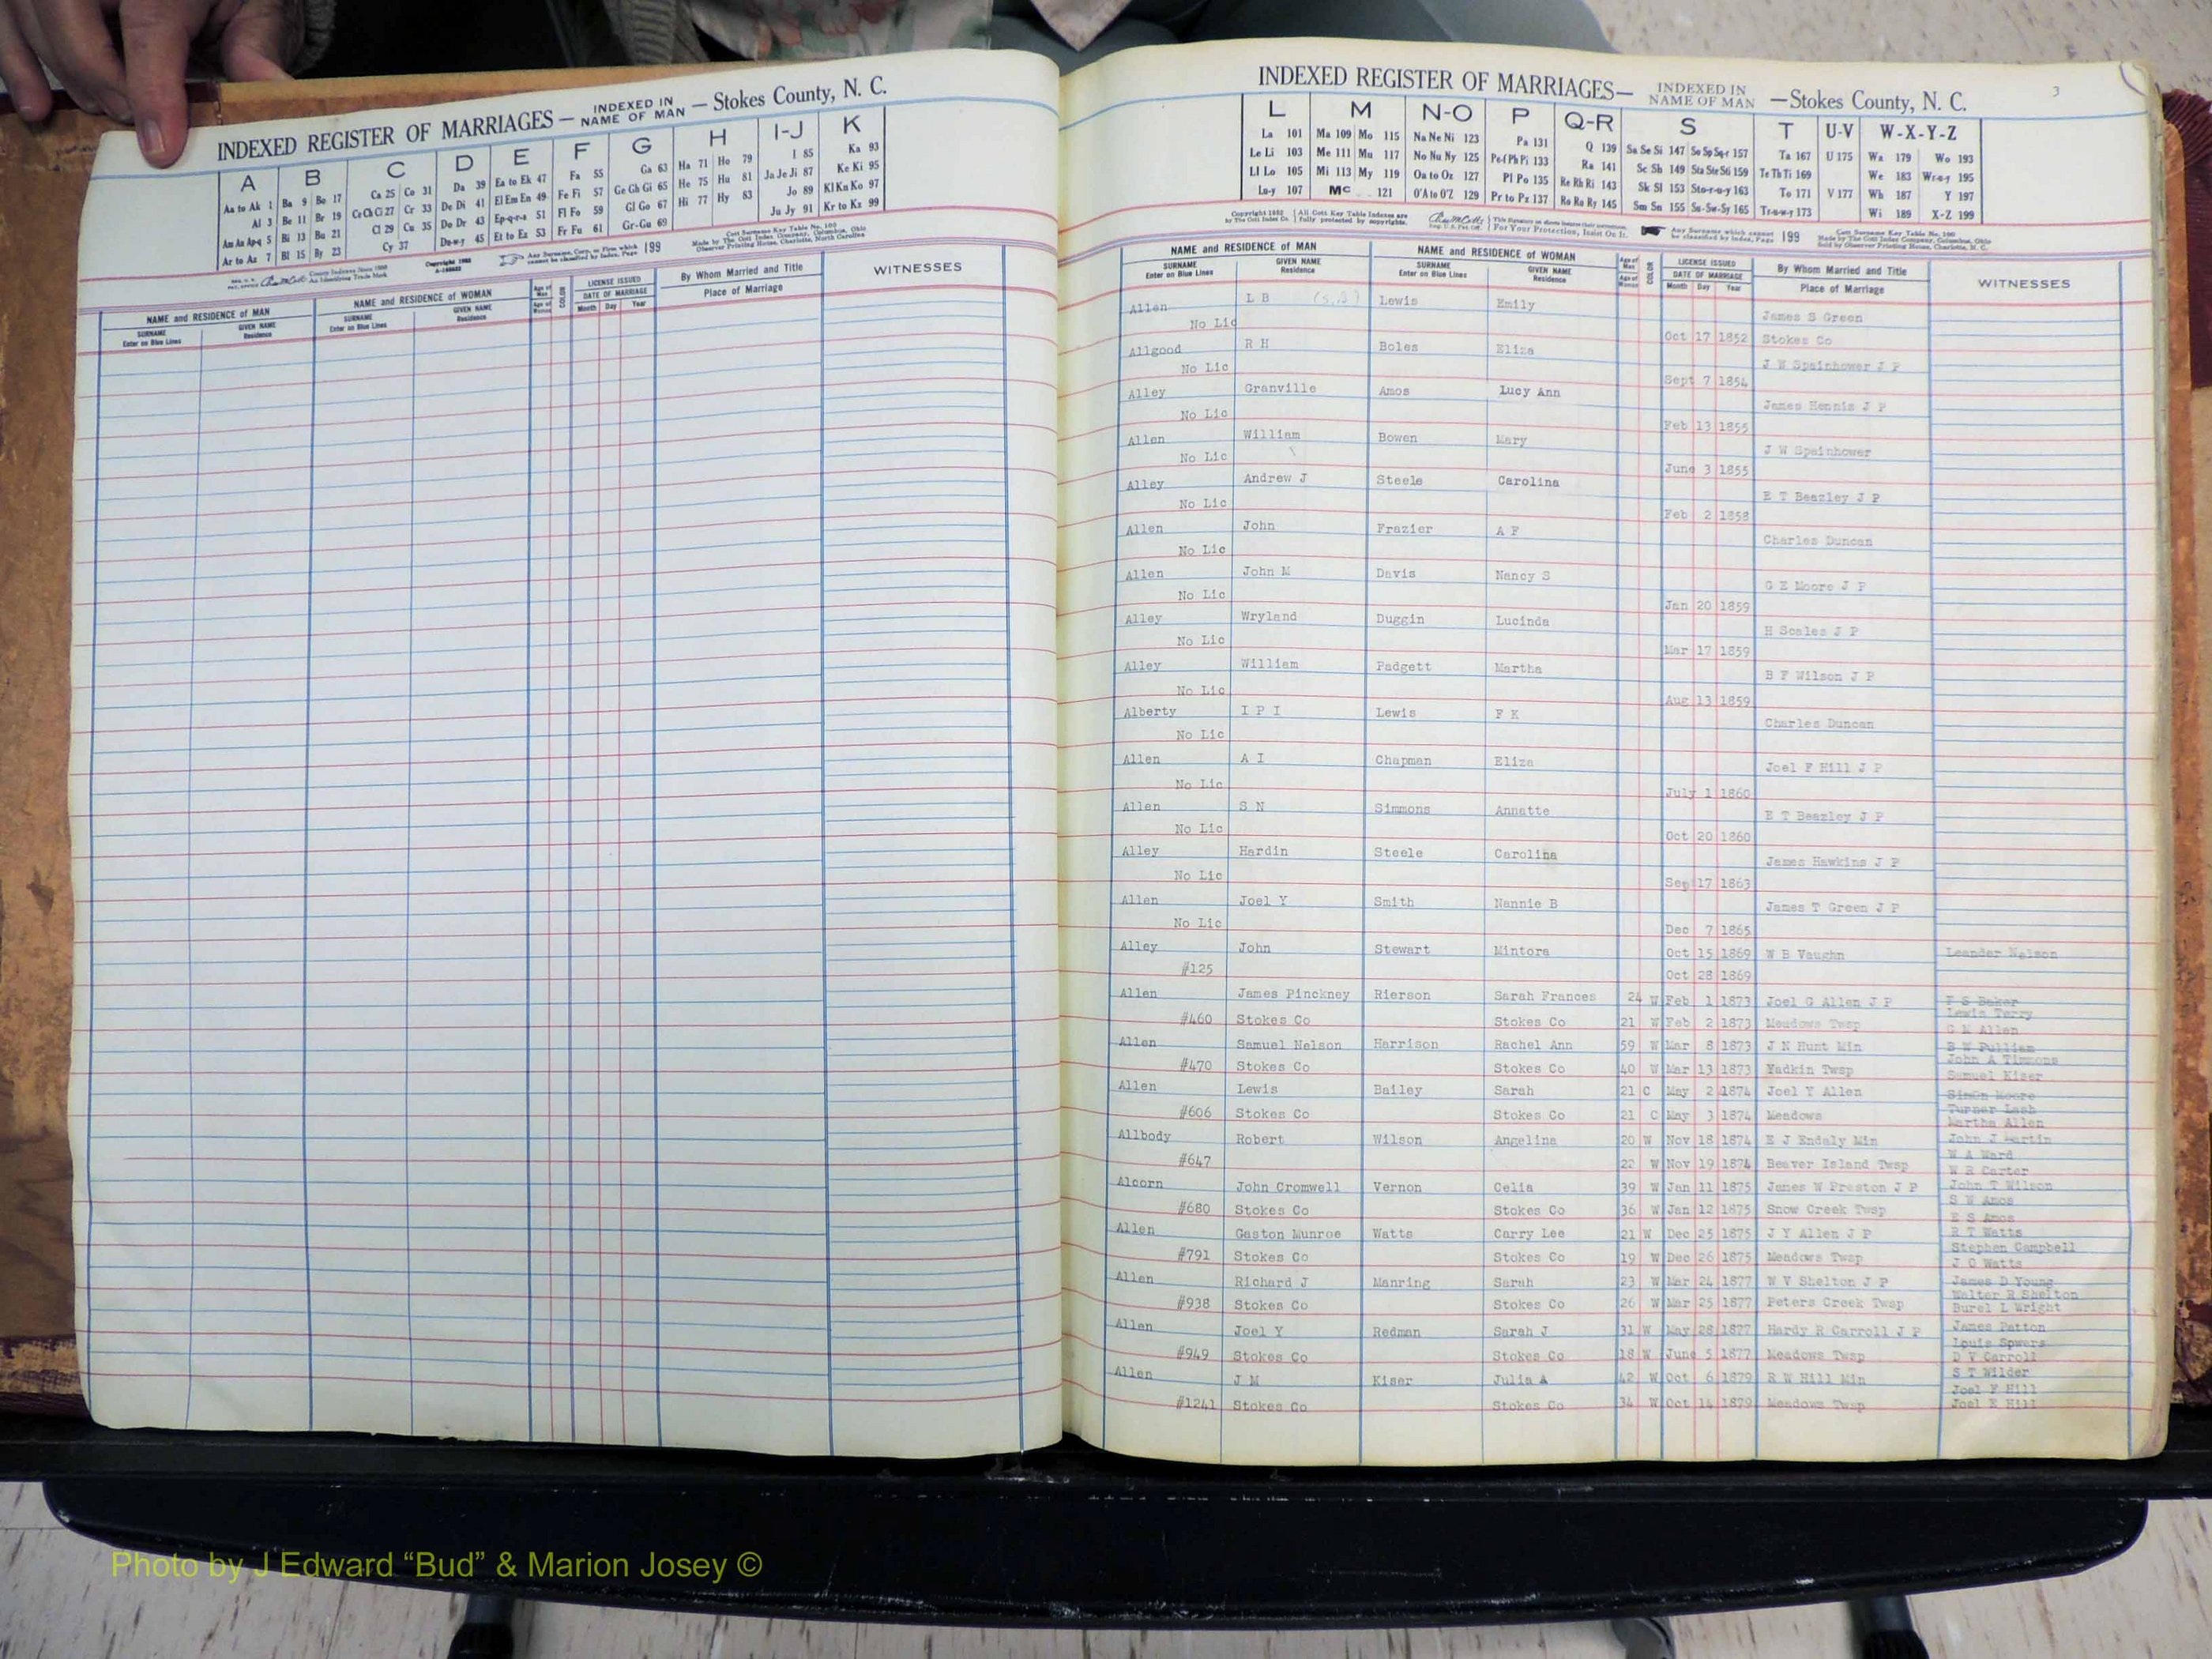 INDEXED REGISTER OF MARRIAGES — INDEXED IN NAME OF MAN — Stokes County, N. C.
A B C D E F G H I-J K
Aa to Ak 1 Ba 9 Bo 17 Ca 25 Co 31 Da 39 Ea to Ek 47 Fa 55 Ga 63 Ha 71 Ho 79 I 85 Ka 93
Al 3 Be 11 Br 19 Ce Ch Ci 27 Cr 33 De Di 41 El Em En 49 Fe Fi 57 Ge Gh Gi 65 He 75 Hu 81 Ja Je Ji 87 Ke Ki 95
Am An Ap-q 5 Bi 13 Bu 21 Cl 29 Cu 35 Do Dr 43 Ep-q-r-s 51 Fl Fo 59 Gl Go 67 Hi 77 Hy 83 Jo 89 Kl Kn Ko 97
Ar to Az 7 Bl 15 By 23 Cy 37 Du-w-y 45 Et to Ez 53 Fr Fu 61 Gr-Gu 69 Ju Jy 91 Kr to Kz 99
Any Surname, Corp. or Firm which cannot be classified by Index, Page 199
Cott Surname Key Table No. 100
Made by The Cott Index Company, Columbus, Ohio
Observer Printing House, Charlotte, North Carolina
NAME and RESIDENCE OF MAN NAME and RESIDENCE OF WOMAN Age of Man Age of Woman COLOR LICENSE ISSUED By Whom Married and Title WITNESSES
SURNAME Enter on Blue Lines GIVEN NAME Residence SURNAME Enter on Blue Lines GIVEN NAME Residence DATE OF MARRIAGE Month Day Year Place of Marriage
INDEXED REGISTER OF MARRIAGES— INDEXED IN NAME OF MAN —Stokes County, N. C. 3
L M N-O P Q-R S T U-V W-X-Y-Z
La 101 Ma 109 Mo 115 Na Ne Ni 123 Pa 131 Q 139 Sa Se Si 147 So Sp Sq-r 157 Ta 167 U 175 Wa 179 Wo 193
Le Li 103 Me 111 Mu 117 No Nu Ny 125 Pe-f Ph Pi 133 Ra 141 Sc Sh 149 Sta Ste Sti 159 Te Th Ti 169 We 183 Wr-u-y 195
Ll Lo 105 Mi 113 My 119 Oa to Oz 127 Pl Po 135 Re Rh Ri 143 Sk Sl 153 Sto-r-u-y 163 To 171 V 177 Wh 187 Y 197
Lu-y 107 Mc 121 O'A to O'Z 129 Pr to Pz 137 Ro Ru Ry 145 Sm Sn 155 Su-Sw-Sy 165 Tr-u-w-y 173 Wi 189 X-Z 199
Any Surname which cannot be classified by Index, Page 199
Cott Surname Key Table No. 100
Made by The Cott Index Company, Columbus, Ohio
Sold by Observer Printing House, Charlotte, N. C.
NAME and RESIDENCE OF MAN NAME and RESIDENCE OF WOMAN Age of Man Age of Woman COLOR LICENSE ISSUED By Whom Married and Title WITNESSES
SURNAME Enter on Blue Lines GIVEN NAME Residence SURNAME Enter on Blue Lines GIVEN NAME Residence DATE OF MARRIAGE Month Day Year Place of Marriage
Allen L B Lewis Emily James S Green
No Lic Oct 17 1852 Stokes Co
Allgood R H Boles Eliza J W Spainhower J P
No Lic Sept 7 1854
Alley Granville Amos Lucy Ann James Hennis J P
No Lic Feb 13 1855
Allen William Bowen Mary J W Spainhower
No Lic June 3 1855
Alley Andrew J Steele Carolina E T Beazley J P
No Lic Feb 2 1858
Allen John Frazier A F Charles Duncan
No Lic
Allen John M Davis Nancy S G E Moore J P
No Lic Jan 20 1859
Alley Wryland Duggin Lucinda H Scales J P
No Lic Mar 17 1859
Alley William Padgett Martha B F Wilson J P
No Lic Aug 13 1859
Alberty I P I Lewis F K Charles Duncan
No Lic
Allen A I Chapman Eliza Joel F Hill J P
No Lic July 1 1860
Allen S N Simmons Annette E T Beazley J P
No Lic Oct 20 1860
Alley Hardin Steele Carolina James Hawkins J P
No Lic Sep 17 1863
Allen Joel Y Smith Nannie B James T Green J P
No Lic Dec 7 1865
Alley John Stewart Mintora Oct 15 1869 W B Vaughn Leander Nelson
#125 Oct 28 1869
Allen James Pinckney Rierson Sarah Frances 24 W Feb 1 1873 Joel G Allen J P F S Baker
Lewis Terry
#460 Stokes Co Stokes Co 21 W Feb 2 1873 Meadows Twsp G M Allen
Allen Samuel Nelson Harrison Rachel Ann 59 W Mar 8 1873 J N Hunt Min B W Pulliam
John A Timmons
#470 Stokes Co Stokes Co 40 W Mar 13 1873 Yadkin Twsp Samuel Kiser
Allen Lewis Bailey Sarah 21 C May 2 1874 Joel Y Allen Simon Moore
Turner Lash
#606 Stokes Co Stokes Co 21 C May 3 1874 Meadows Martha Allen
Allbody Robert Wilson Angelina 20 W Nov 18 1874 E J Endaly Min John J Martin
W A Ward
#647 22 W Nov 19 1874 Beaver Island Twsp W R Carter
Alcorn John Cromwell Vernon Celia 39 W Jan 11 1875 James W Preston J P John T Wilson
S W Amos
#680 Stokes Co Stokes Co 36 W Jan 12 1875 Snow Creek Twsp E S Amos
Allen Gaston Munroe Watts Carry Lee 21 W Dec 25 1875 J Y Allen J P R T Watts
Stephen Campbell
#791 Stokes Co Stokes Co 19 W Dec 26 1875 Meadows Twsp J O Watts
Allen Richard J Manring Sarah 23 W Mar 24 1877 W V Shelton J P James D Young
Walter R Shelton
#938 Stokes Co Stokes Co 26 W Mar 25 1877 Peters Creek Twsp Burel L Wright
Allen Joel Y Redman Sarah J 31 W May 28 1877 Hardy R Carroll J P James Patton
Louis Spwers
#949 Stokes Co Stokes Co 18 W June 5 1877 Meadows Twsp D V Carroll
Allen J M Kiser Julia A 42 W Oct 6 1879 R W Hill Min S T Wilder
Joel F Hill
#1241 Stokes Co Stokes Co 34 W Oct 14 1879 Meadows Twsp Joel E Hill
Photo by J Edward “Bud” & Marion Josey ©